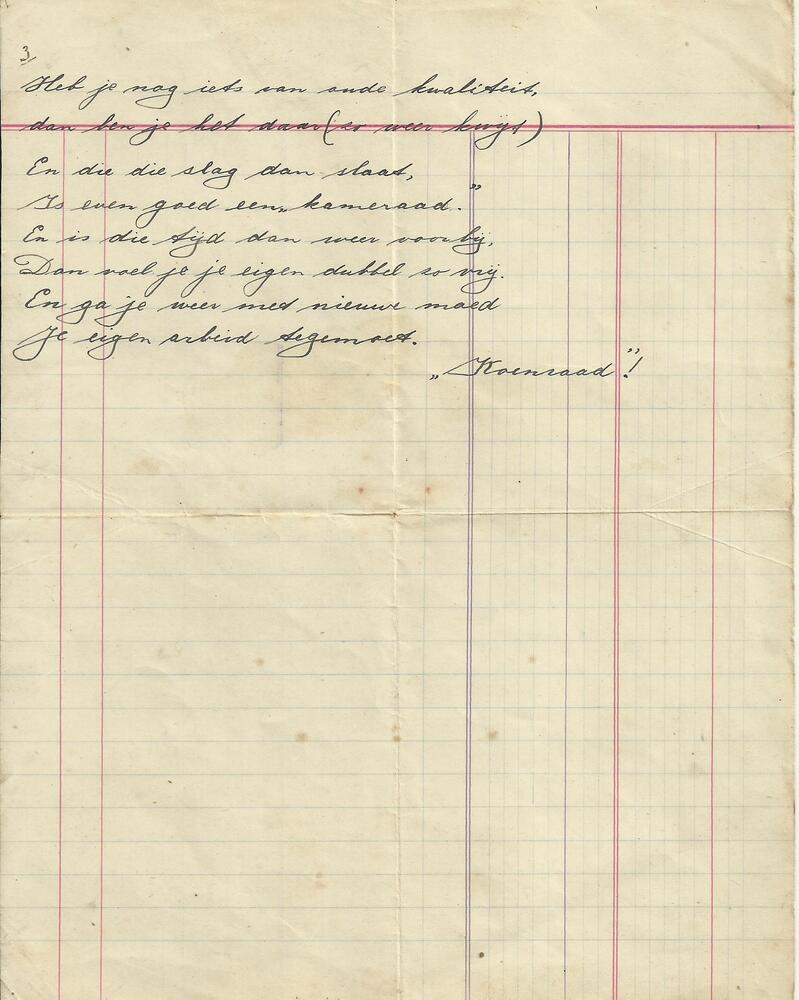 3,
Heb je nog iets van oude kwaliteit,
dan ben je het daar (zo weer kwijt)
En die die slag dan slaat,
Is even goed een „kameraad."
En is die tijd dan weer voorbij,
Dan voel je je eigen dubbel zo vrij.
En ga je weer met nieuwe moed
Je eigen arbeid tegemoet.
„Koenraad"!